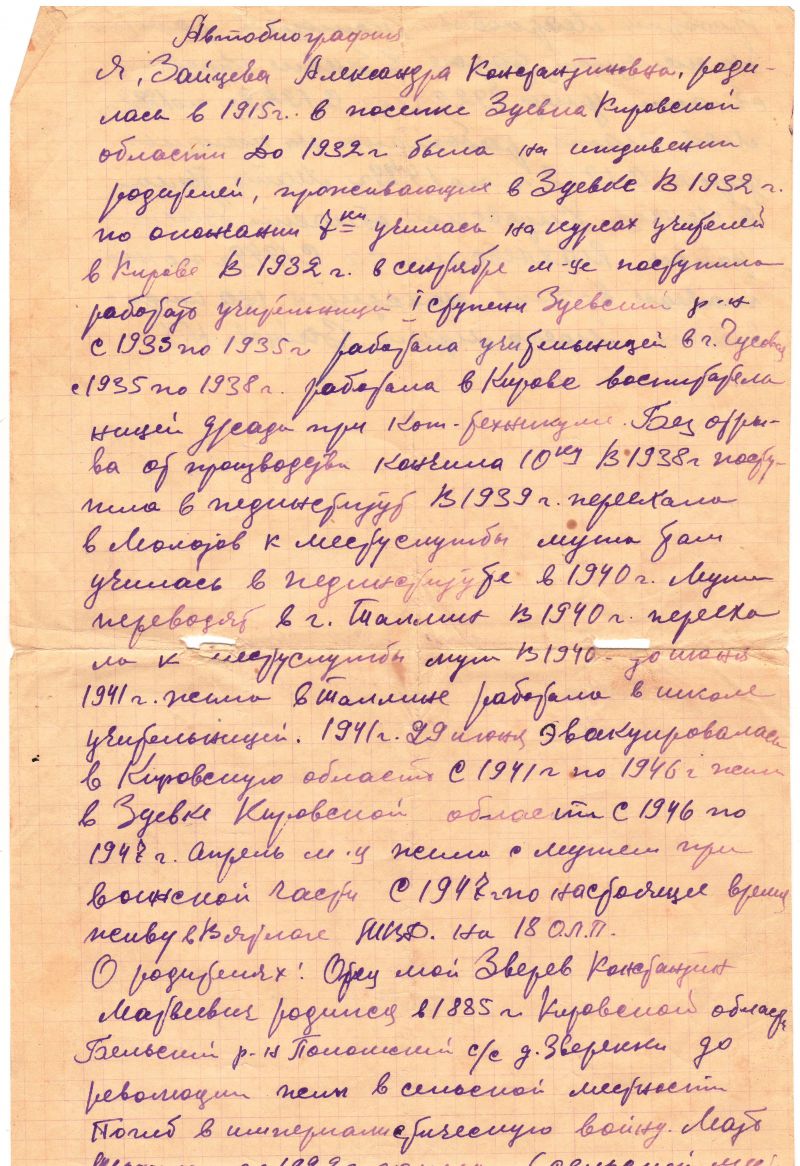 Автобиография
Я, Зайцева Александра Константиновна, роди-
лась в 1915г. в поселке Зуевка Кировской
области До 1932 г была на иждивении
родителей, проживающих в Зуевке В 1932 г.
по окончании 7ки училась на курсах учителей
в Кирове В 1932 г. в сентябре м-це поступила
работать учительницей I ступени Зуевский р-н
С 1933 по 1935г работала учительницей в г.
с 1935 по 1938 г. работала в Кирове воспитатель
ницей д/сада при техникуме. Без отры-
ва от производства кончила 10ку В 1938г посту-
пила в пединститут В 1939 г. переехала
в Молотов к месту службы мужа там
училась в пединституте в 1940 г. Мужа
переводят в г. Таллин В 1940 г. перееха
ла к месту службы мужа В 1940 - до июня
1941 г. жила в Таллине работала в школе
учительницей. 1941 г. 29 июня эвакуировалась
в Кировскую область С 1941 г по 1946 г жила
в Зуевке Кировской области С 1946 по
1947 г. апрель м-ц жила с мужем при
воинской части С 1947 г по настоящее время
живу в Вятлаге МВД. на 18 О.Л.П.
О родителях: Отец мой Зверев Константин
Матвеевич родился в 1885 г Кировской область
р-н с/с д. Зверенки до
революции жил в сельской местности
Погиб в империалистическую войну. Мать